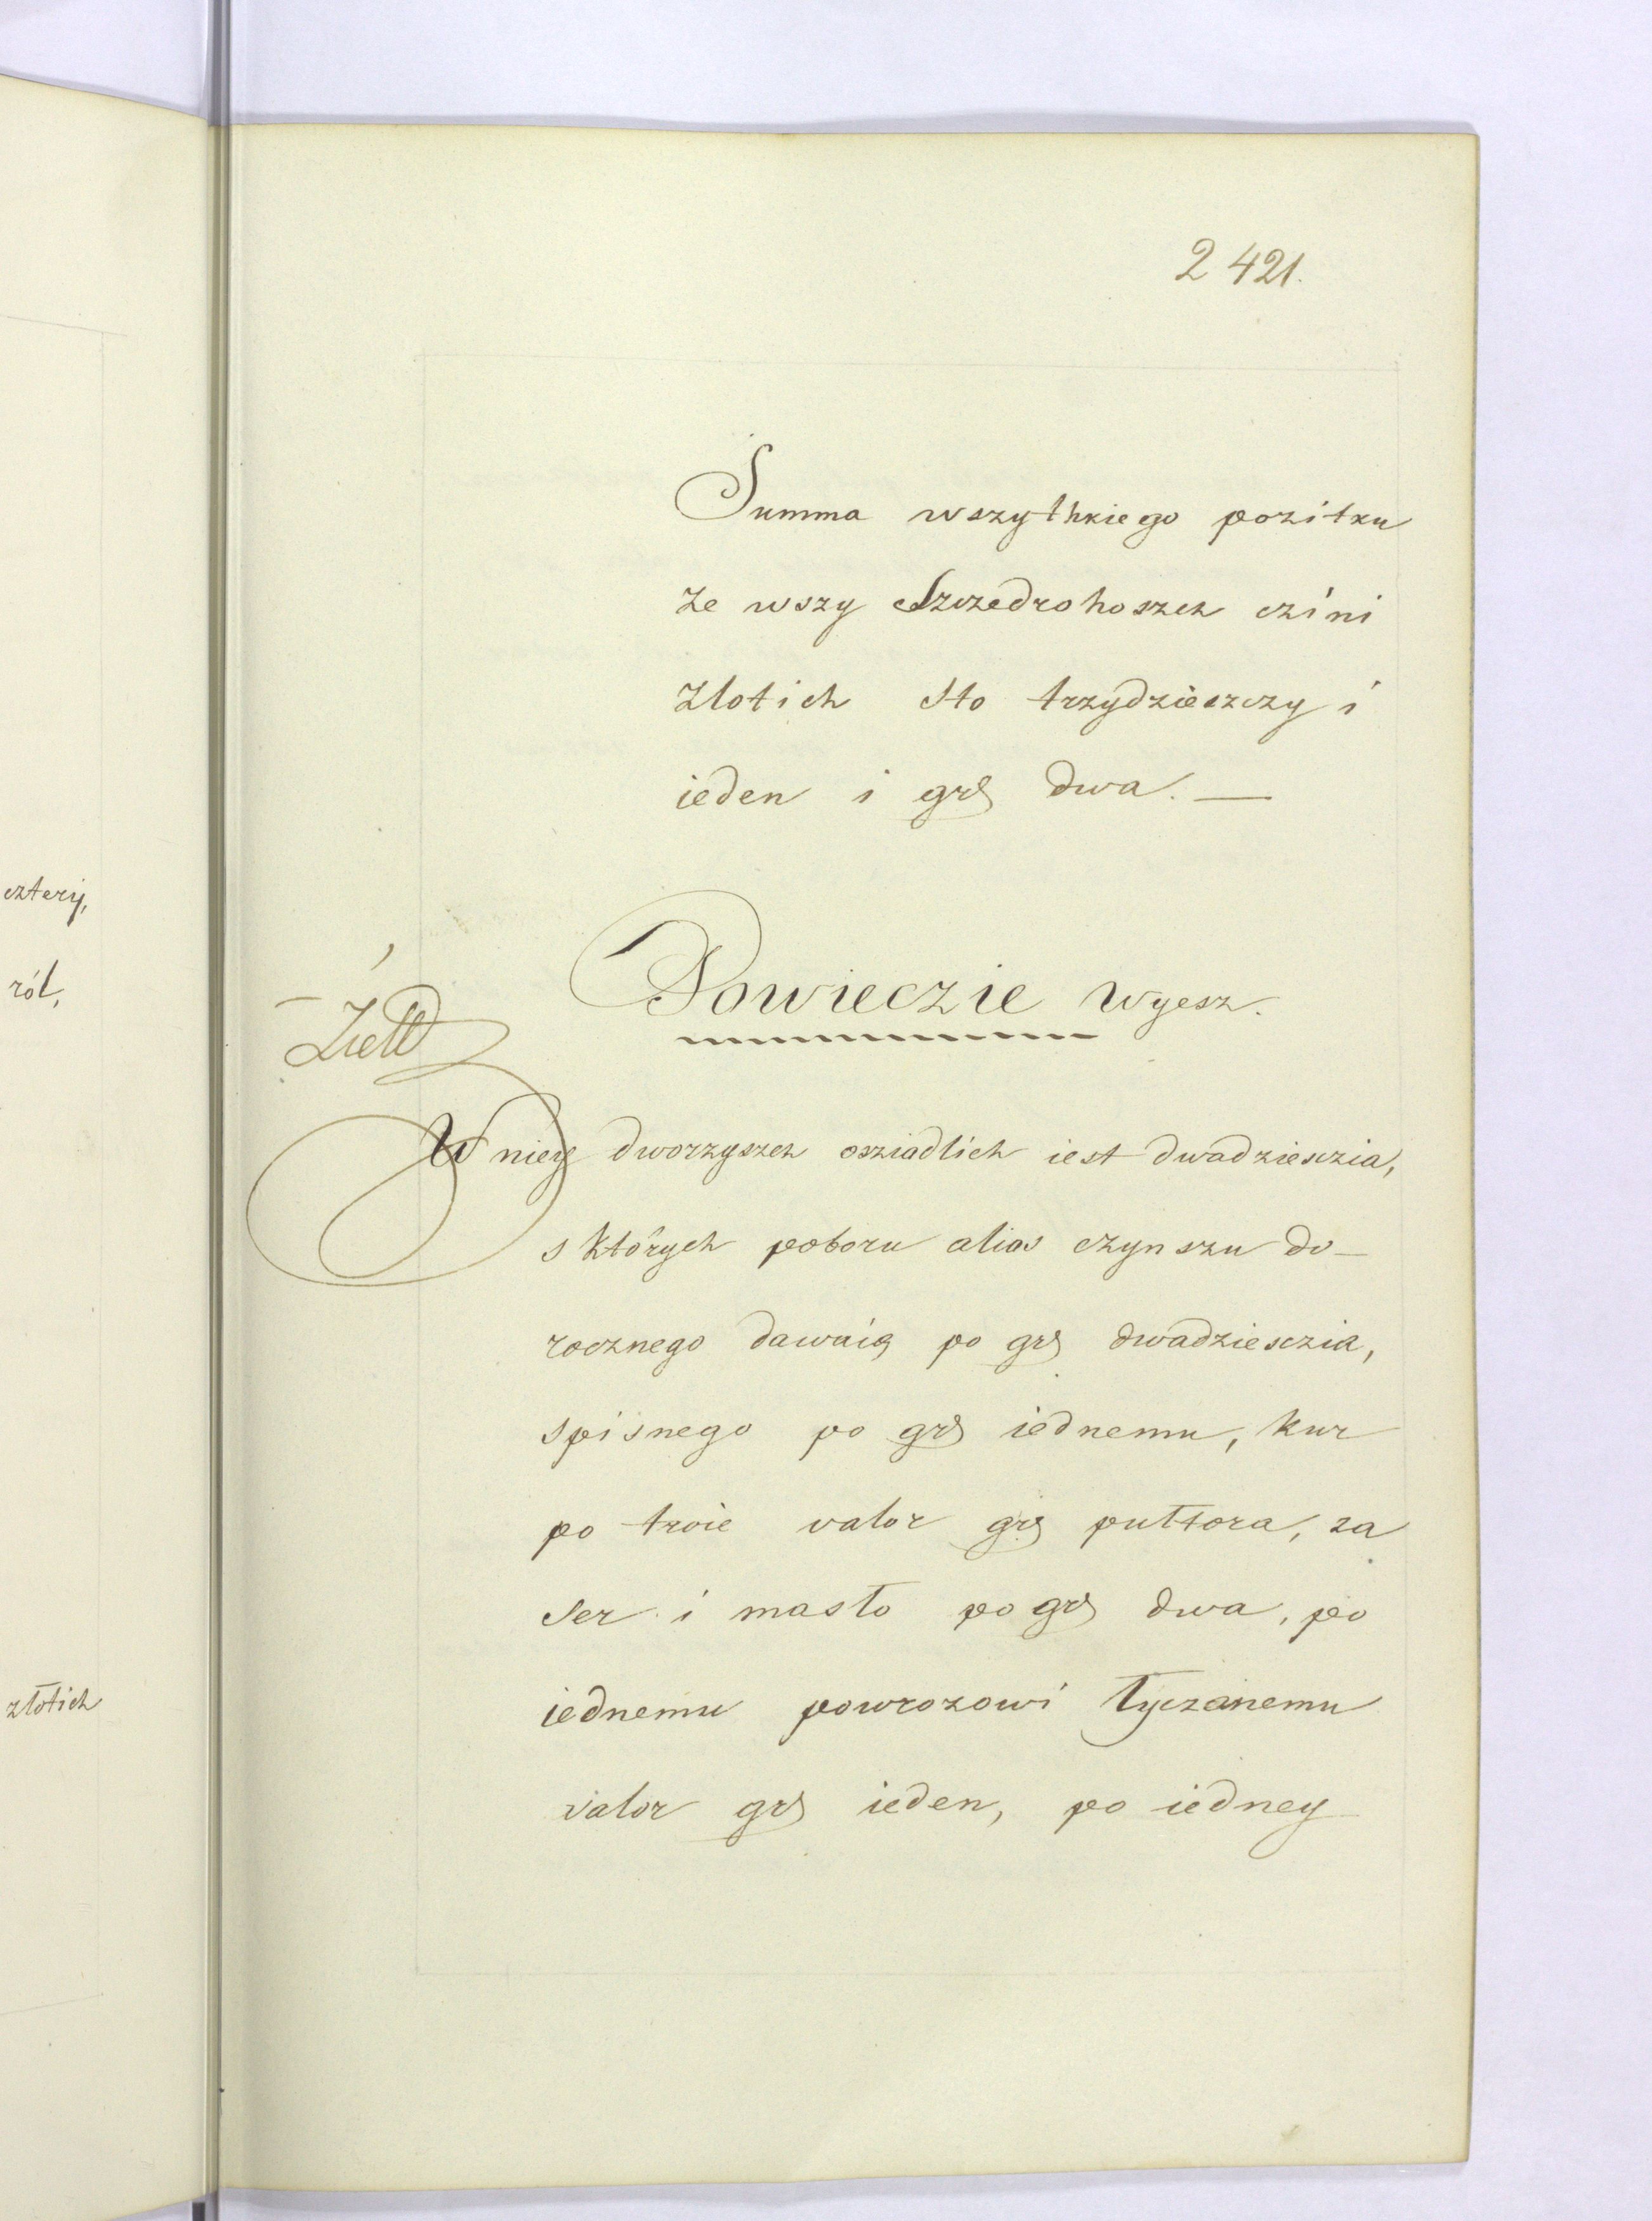 2 421.
Summa wszythkiego pozitku
ze wszy Szczedrohoszcz czini
Zlotich sto trzydzieszczy i
ieden i grs dwa. —
Powieczie wyesz.
W niey dworzyszcz osziadlich iest dwadziesczia,
s których poboru alias czynszu do-
rocznego dawaią po grs dwadziesczia,
spisnego po grs iednemu, kur
po troie valor grs pułtora, za
ser i masło po grs dwa, po
iednemu powrozowi łyczanemu
valor grs ieden, po iedney
cztery,
ról,
złotich